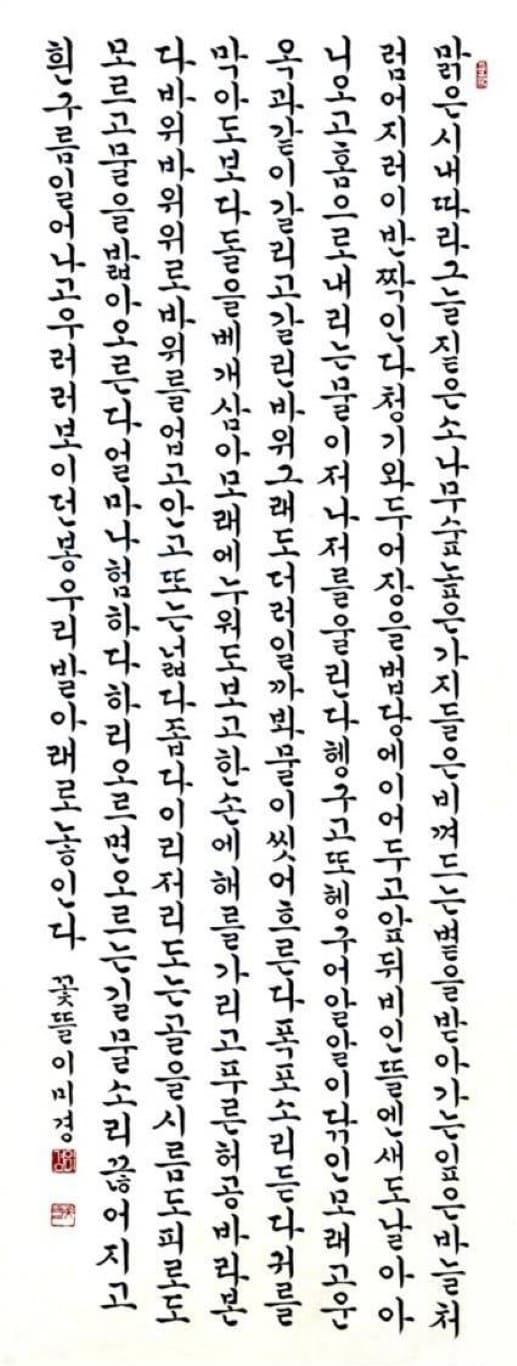 맑은시내따라그늘짙은소나무숲높은가지들은비껴드는볕을받아가는잎은바늘처
럼어지러이반짝인다청기와두어장을법당에이어두고앞뒤비인뜰엔새도날아아
니오고홈으로내리는물이저나저를울린다헹구고또헹구어알알이닦인모래고운
옥과같이갈리고갈린바위그래도더러일까봐물이씻어흐른다폭포소리듣다귀를
막아도보다돌을베개삼아모래에누워도보고한손에해를가리고푸른허공바라본
다바위바위위로바위를업고안고또는넓다좁다이리저리도는골을시름도피로도
모르고물을밟아오른다얼마나험하다하리오르면오르는길물소리끊어지고
흰구름일어나고우러러보이던봉우리발아래로놓인다 꽃뜰이미경